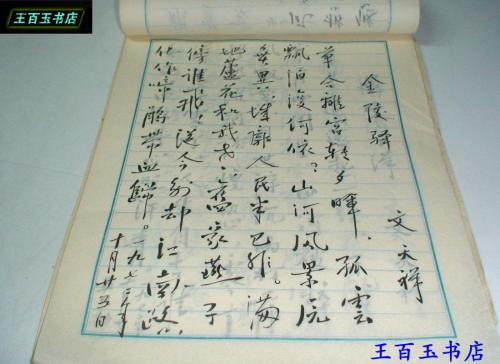 王百玉书店
金陵驿
文天祥
草合離宮转夕暉，孤雲
飘泊復何依？山河風景元
無異，城廓人民半已非。满
地蘆花和我老，舊家燕子
傍谁飛，從今别却江南路，
化作啼鹃带血歸。一九七二年
十月廿五日
王百玉书店